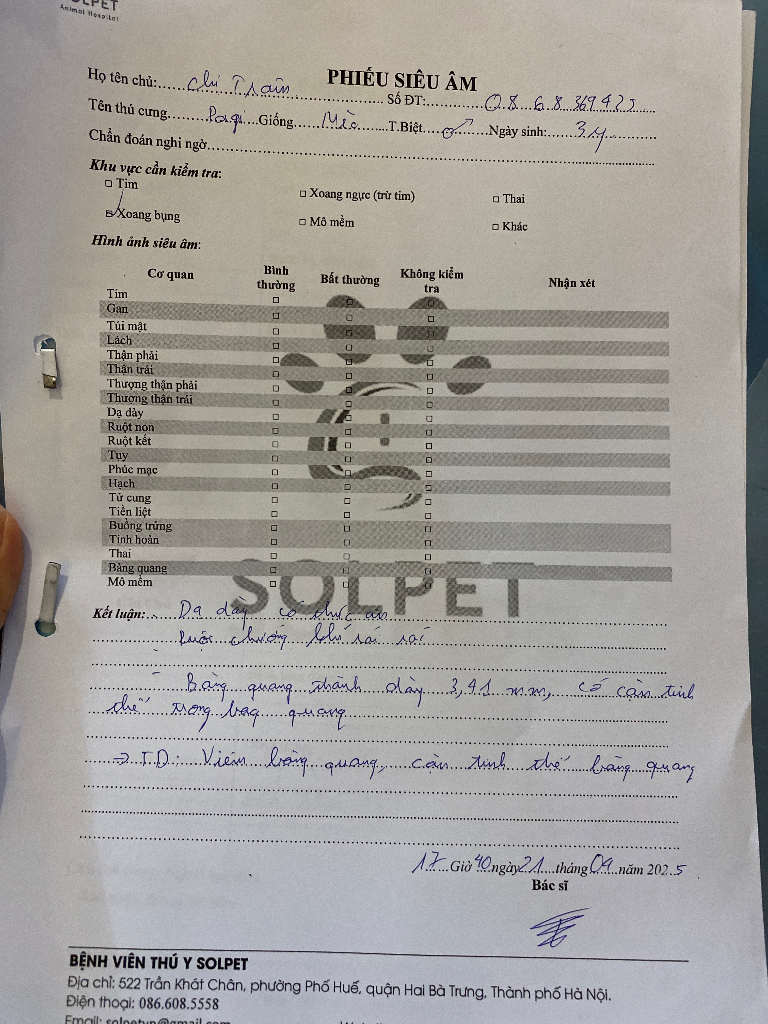 SOLPET
Animal Hospital
PHIẾU SIÊU ÂM
Họ tên chủ: Chị Trâm Số ĐT: 086.8369425
Tên thú cưng Pagi Giống Mèo T.Biệt ♂ Ngày sinh: 3y
Chẩn đoán nghi ngờ
Khu vực cần kiểm tra:
□ Tim □ Xoang ngực (trừ tim) □ Thai
☑ Xoang bụng □ Mô mềm □ Khác
Hình ảnh siêu âm:
Cơ quan Bình thường Bất thường Không kiểm tra Nhận xét
Tim □ □ □
Gan □ □ □
Túi mật □ □ □
Lách □ □ □
Thận phải □ □ □
Thận trái □ □ □
Thượng thận phải □ □ □
Thượng thận trái □ □ □
Dạ dày □ □ □
Ruột non □ □ □
Ruột kết □ □ □
Tụy □ □ □
Phúc mạc □ □ □
Hạch □ □ □
Tử cung □ □ □
Tiền liệt □ □ □
Buồng trứng □ □ □
Tinh hoàn □ □ □
Thai □ □ □
Bàng quang □ □ □
Mô mềm □ □ □
SOLPET
Kết luận: Dạ dày có thức ăn
Ruột chướng khí rải rác
- Bàng quang thành dày 3,41 mm, có cặn tinh
thể trong bàng quang
=> T.D: Viêm bàng quang, cặn tinh thể bàng quang
17 Giờ 40 ngày 21 tháng 09 năm 2025
Bác sĩ
BỆNH VIỆN THÚ Y SOLPET
Địa chỉ: 522 Trần Khát Chân, phường Phố Huế, quận Hai Bà Trưng, Thành phố Hà Nội.
Điện thoại: 086.608.5558
Email: solpetvn@gmail.com